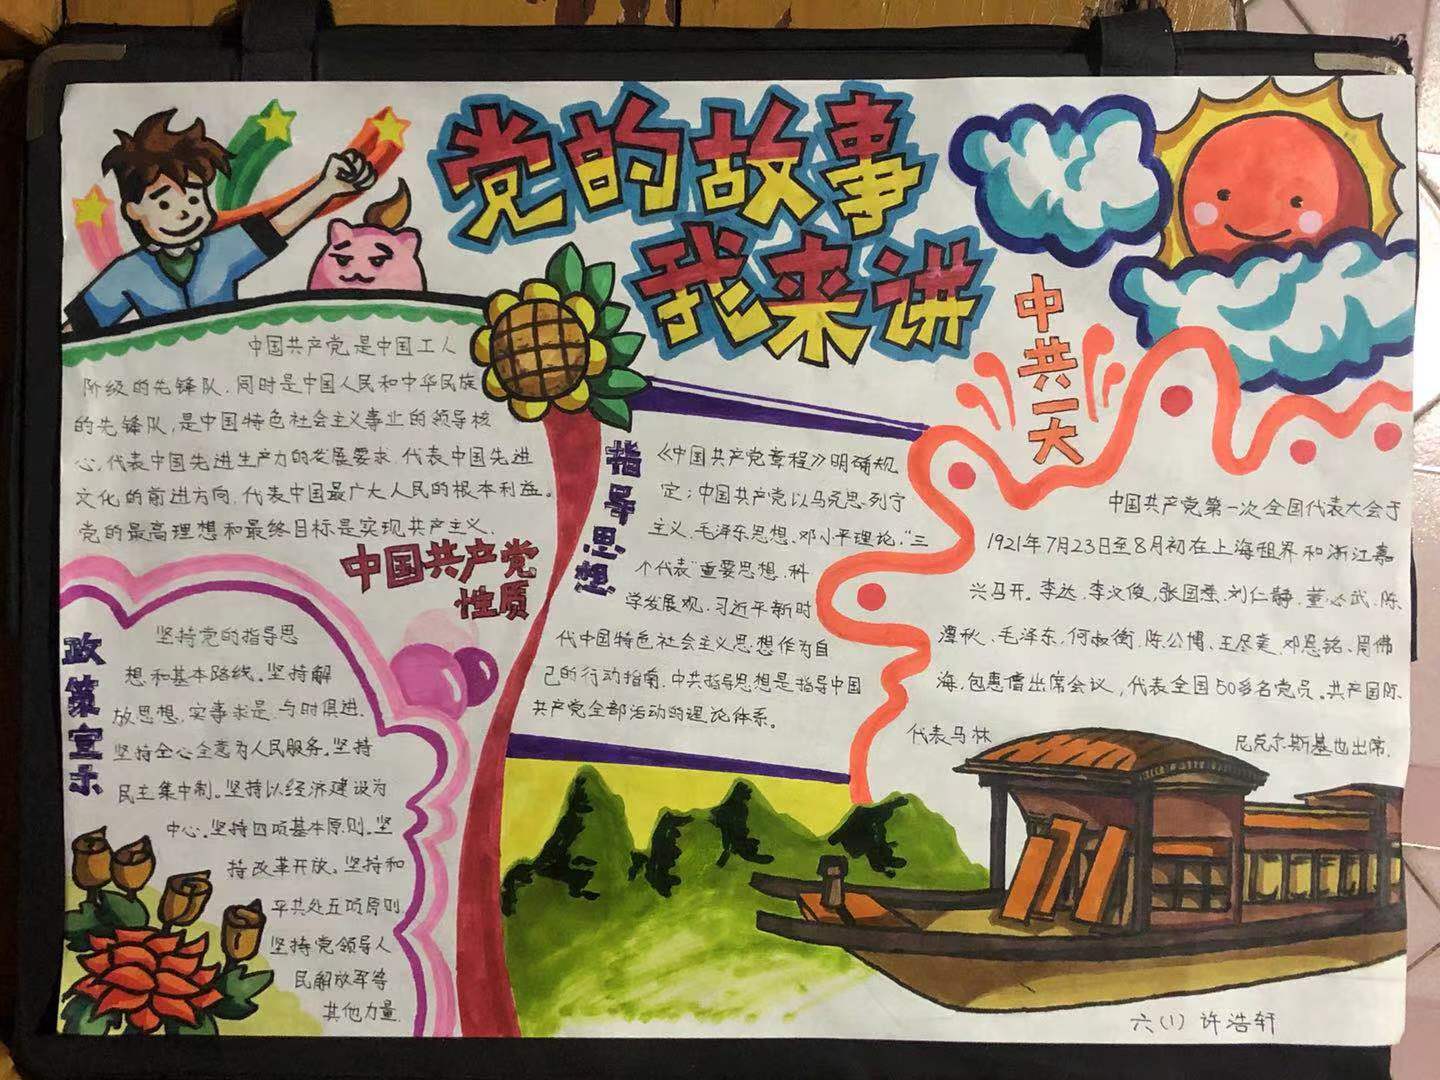 党的故事
我来讲
中国共产党是中国工人
阶级的先锋队，同时是中国人民和中华民族
的先锋队，是中国特色社会主义事业的领导核
心，代表中国先进生产力的发展要求，代表中国先进
文化的前进方向，代表中国最广大人民的根本利益。
党的最高理想和最终目标是实现共产主义、
中国共产党
性质
政策宣示
坚持党的指导思
想和基本路线。坚持解
放思想，实事求是，与时俱进，
坚持全心全意为人民服务。坚持
民主集中制。坚持以经济建设为
中心。坚持四项基本原则。坚
持改革开放。坚持和
平共处五项原则
坚持党领导人
民解放军等
其他力量.
指导思想
《中国共产党章程》明确规
定：中国共产党以马克思列宁
主义、毛泽东思想、邓小平理论，“三
个代表”重要思想、科
学发展观、习近平新时
代中国特色社会主义思想作为自
己的行动指南，中共指导思想是指导中国
共产党全部活动的理论体系。
中共一大
中国共产党第一次全国代表大会于
1921年7月23日至8月初在上海租界和浙江嘉
兴马开。李达、李汉俊，张国焘、刘仁静、董必武、陈
潭秋、毛泽东、何叔衡、陈公博、王尽美、邓恩铭、周佛
海，包惠僧出席会议，代表全国50多名党员。共产国际
代表马林 尼克尔斯基也出席.
六(1) 许浩轩